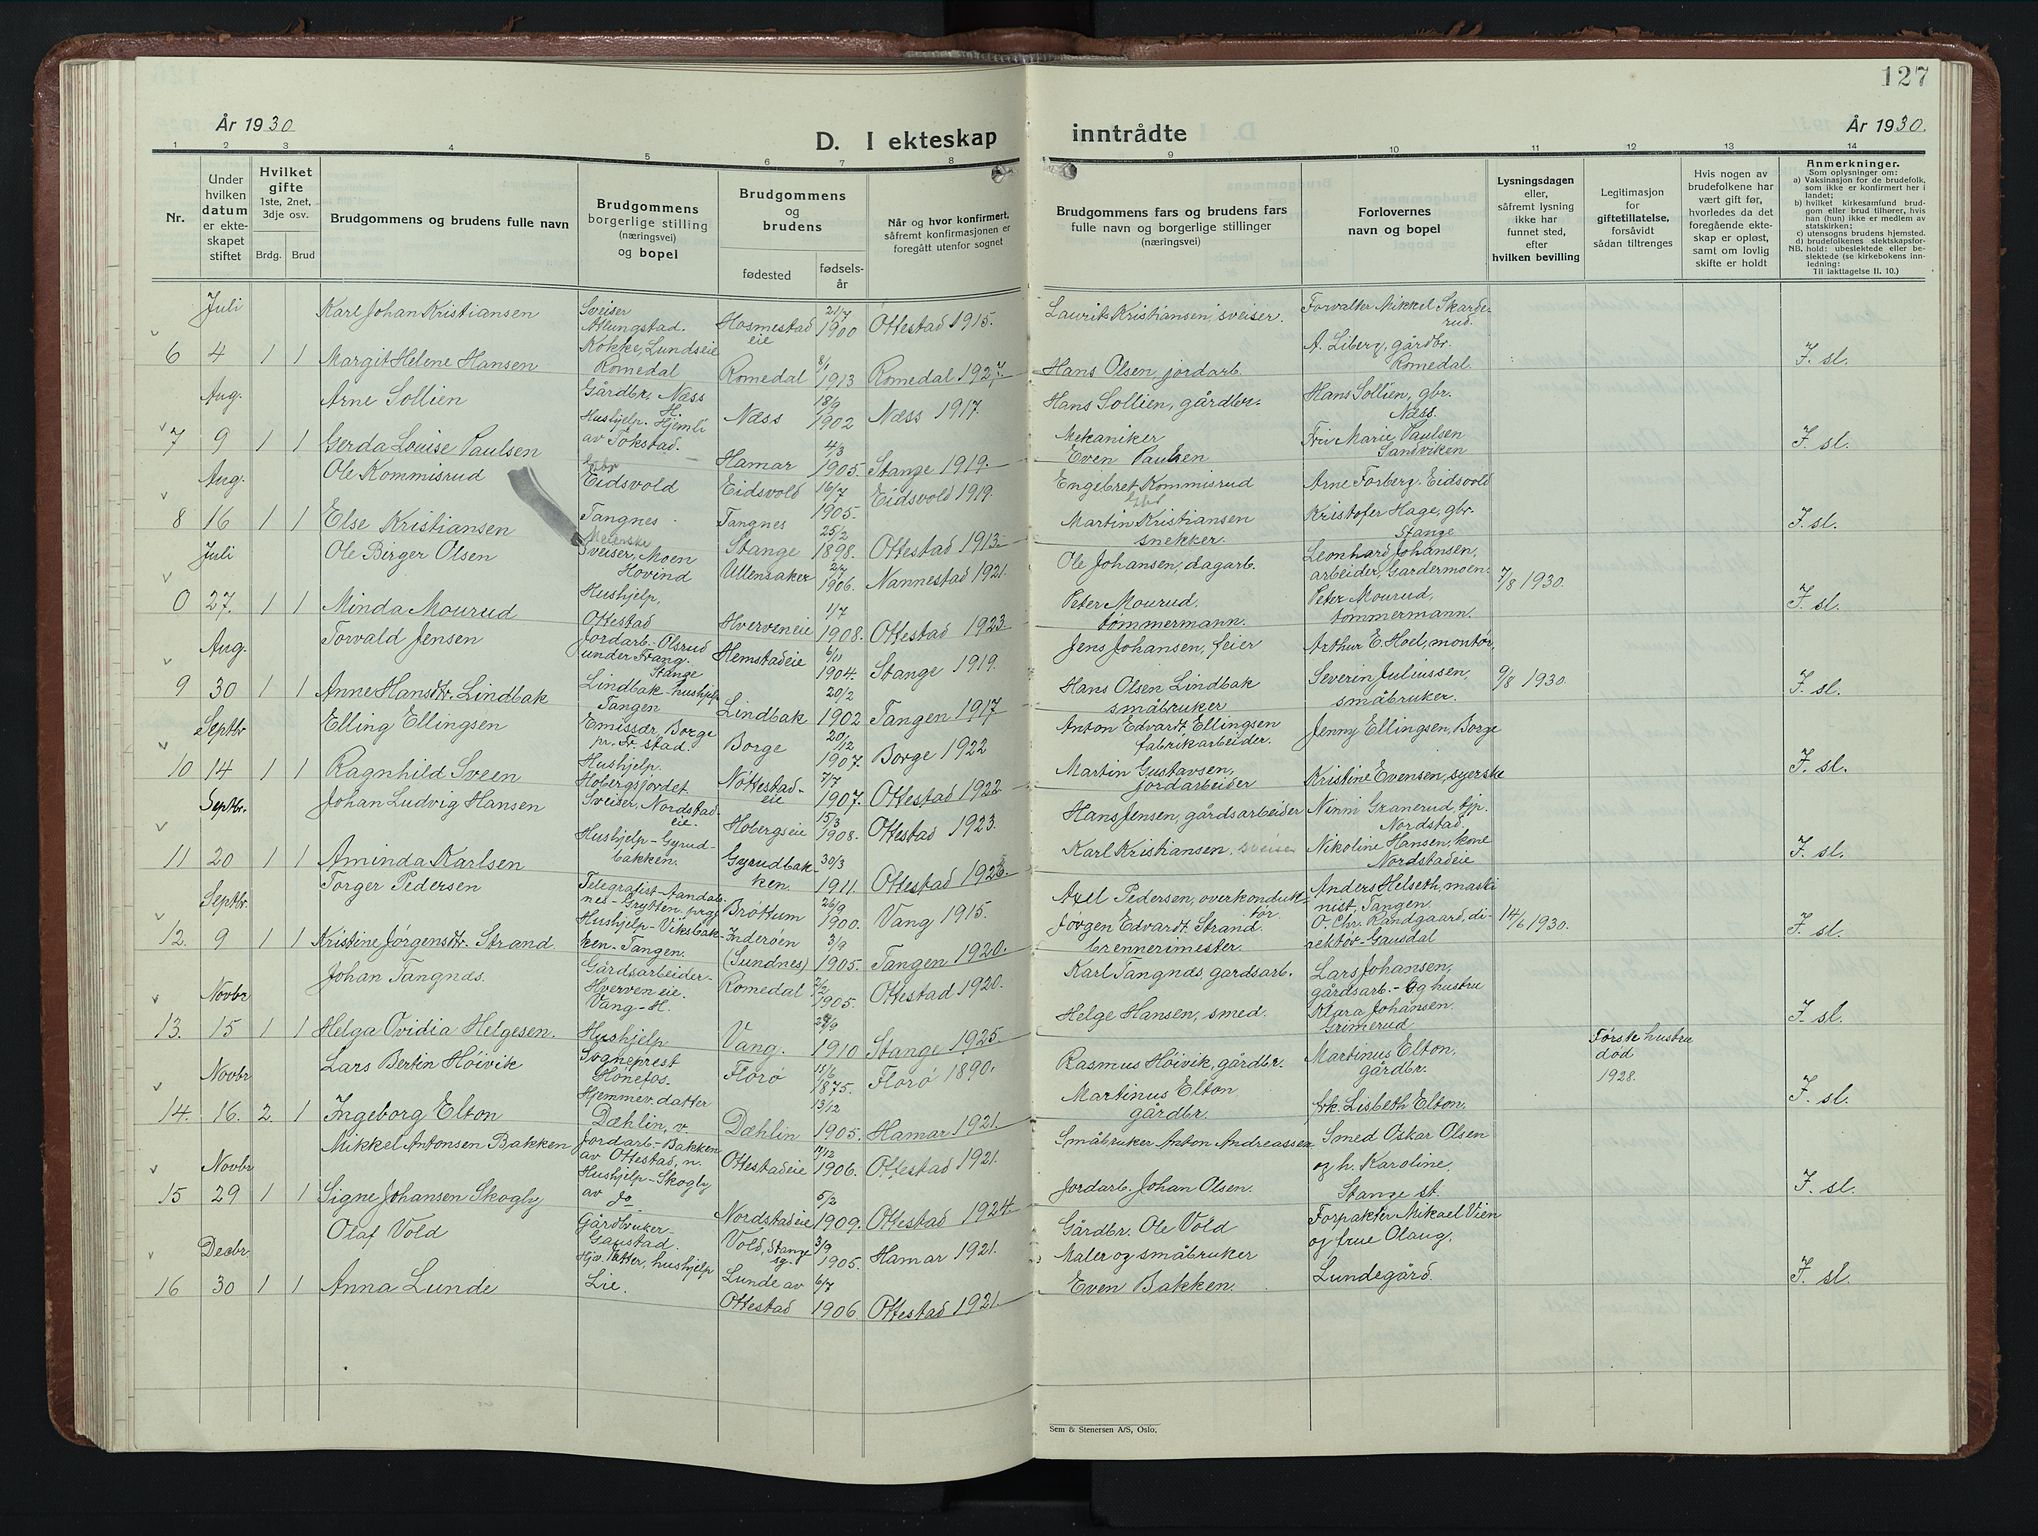 127
År 1930
D. I ekteskap
inntrådte
År 1930.
1 2 3 4 5 6 7 8 9 10 11 12 13 14
Nr.
Under hvilken datum er ekteskapet stiftet
Hvilket gifte 1ste, 2net, 3dje osv.
Brdg. Brud
Brudgommens og brudens fulle navn
Brudgommens borgerlige stilling (næringsvei) og bopel
Brudgommens og brudens
fødested
fødselsår
Når og hvor konfirmert, såfremt konfirmasjonen er foregått utenfor sognet
Brudgommens fars og brudens fars fulle navn og borgerlige stillinger (næringsvei)
Forlovernes navn og bopel
Lysningsdagen eller, såfremt lysning ikke har funnet sted, efter hvilken bevilling
Legitimasjon for giftetillatelse, forsåvidt sådan tiltrenges
Hvis nogen av brudefolkene har vært gift før, hvorledes da det foregående ekteskap er opløst, samt om lovlig skifte er holdt
Anmerkninger.
Som oplysninger om:
a) Vaksinasjon for de brudefolk, som ikke er konfirmert her i landet;
b) hvilket kirkesamfund brudgom eller brud tilhører, hvis han (hun) ikke er medlem av statskirken;
c) utensogns brudens hjemsted.
d) brudefolkenes slektskapsforhold: ubeslektede eller beslektede (se kirkebokens innledning:
NB.
Til iakttagelse II. 10.)
Juli
Karl Johan Kristiansen
Sveiser Atlungstad.
Hosmestad eie
21/7 1900
Ottestad 1915.
Laurits Kristiansen, sveiser.
Forvalter Mikkel Skarderud.
6 4 1 1
Margit Helene Hansen
Kokke, Lundseie Romedal
Romedal
8/1 1913
Romedal 1927.
Hans Olsen, jordarb.
A. Liberg, gårdbr. Romedal
F. sl.
Aug.
Arne Sollien
Gårdbr, Næss H.
Næss
18/9 1902
Næss 1917.
Hans Sollien, gårdbr.
Hans Sollien, gbr. Næss.
7 9 1 1
Gerda Louise Paulsen
Hushjelp. Hjemli av Tokstad.
Hamar
4/3 1905.
Stange 1919.
Mekaniker Even Paulsen
Fru Marie Paulsen Sandviken
F. sl.
Aug.
Ole Kommisrud
Eidsvold
Eidsvold
16/7 1905.
Eidsvold 1919.
Engebret Kommisrud
Arne Forberg. Eidsvold
8 16 1 1
Else Kristiansen
Tangnes.
Tangnes Stange
25/2 1898.
Ottestad 1913
Martin Kristiansen snekker.
Kristofer Hage, gbr. Stange
F. sl.
Juli
Ole Birger Olsen
Sveiser, Moen Hovind
Ullensaker
2/7 1906.
Nannestad 1921.
Ole Johansen, dagarb.
Leonhard Johansen, arbeider, Gardermoen
7/8 1930.
0 27. 1 1
Minda Mourud
Hushjelp, Ottestad
Hverveneie
1/7 1908.
Ottestad 1923
Peter Mourud, tømmermann.
Peter Mourud, tømmermann.
F. sl.
Aug.
Torvald Jensen
Jordarb. Olsrud under Frang. Stange
Hemstadeie
6/11 1904.
Stange 1919.
Jens Johansen, feier
Arthur E. Hoel, montør,
9 30 1 1
Anne Hansdtr. Lindbak
Lindbak - hushjelp Tangen
Lindbak
20/2 1902
Tangen 1917
Hans Olsen Lindbak småbruker
Severin Juliussen, småbruker.
9/8 1930.
F. sl.
Septbr
Elling Ellingsen
Emissær, Borge pr. Fr. stad
Borge
20/12 1907.
Borge 1922
Anton Edvardt Ellingsen fabrikarbeider.
Jenny Ellingsen, Borge
10 14 1 1
Ragnhild Sveen
Hushjelp. Hobergsjordet
Nøttestadeie
7/7 1907.
Ottestad 1922
Martin Gustavsen, jordarbeider
Kristine Evensen, syerske
F. sl.
Septbr.
Johan Ludvig Hansen
Sveiser, Nordstadeie.
Hobergseie
15/3 1908.
Ottestad 1923.
Hans Jensen, gårdsarbeider
Ninni Granerud tjp. Nordstad.
11 20 1 1
Aminda Karlsen
Hushjelp - Gyrudbakken.
Gyrudbakken.
30/3 1911.
Ottestad 1925.
Karl Kristiansen. sveiser
Nikoline Hansen, kone Nordstadeie
F. sl.
Septbr
Torger Pedersen
Telegrafist - Aandalsnes - Grytten. prgj
Brøttum
26/9 1900.
Vang 1915.
Axel Pedersen, overkonduktør
Anders Helseth, maskinist, Tangen.
12. 9 1 1
Kristine Jørgensdtr. Strand.
Hushjelp - Viksbakken. Tangen.
Inderøen (Sundnes)
3/9 1905.
Tangen 1920.
Jørgen Edvardt Strand. brennerimester.
O. Chr. Randgaard, direktør - Gausdal
14/6 1930.
F. sl.
Novbr
Johan Tangnæs.
Gårdsarbeider - Hverveneie. Vang - H.
Romedal
2/2 1905.
Ottestad 1920.
Karl Tangnæs, gardsarb.
Lars Johansen, gårdsarb. - og hustru
13. 15 1 1
Helga Ovidia Helgesen.
Hushjelp
Vang.
29/9 1910
Stange 1925.
Helge Hansen, smed.
Klara Johansen. Grimerud
F. sl.
Novbr
Lars Bertin Høivik
Sogneprest Hønefos.
Florø
15/6 1875.
Florø 1890.
Rasmus Høivik, gårdbr.
Martinus Elton. gårdbr.
Første hustru død 1928.
14. 16. 2. 1
Ingeborg Elton
Hjemmev. datter Dæhlin, v.
Dæhlin
13/12 1905.
Hamar 1921.
Martinus Elton gårdbr.
frk. Lisbeth Elton.
F. sl.
Novbr
Mikkel Antonsen Bakken
Jordarb - Bakken av Ottestad, n.
Ottestadeie
11/12 1906.
Ottestad 1921.
Småbruker Anton Andreassen
Smed Oskar Olsen og h. Karoline.
15 29 1 1
Signe Johansen Skogly
Hushjelp - Skogly av do
Nordstadeie
5/2 1909.
Ottestad 1924.
Jordarb. Johan Olsen.
Stange st.
F. sl.
Decbr
Olaf Vold
Gårdbruker Gaustad.
Vold, Stange sg.
3/9 1905.
Hamar 1921.
Gårdbr. Ole Vold
Forpakter Mikael Vien og frue Olaug.
16 30 1 1
Anna Lunde
Hjv. datter, hushjelp Lie.
Lunde av Ottestad
6/7 1906.
Ottestad 1921.
Maler og småbruker Even Bakken.
Lundegård.
F. sl.
Sem & Stenersen A/S, Oslo.